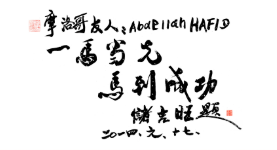 摩洛哥友人:Abdellah HAFID
一馬當先
馬到成功
儲吉旺題
二〇一四、九、十七、